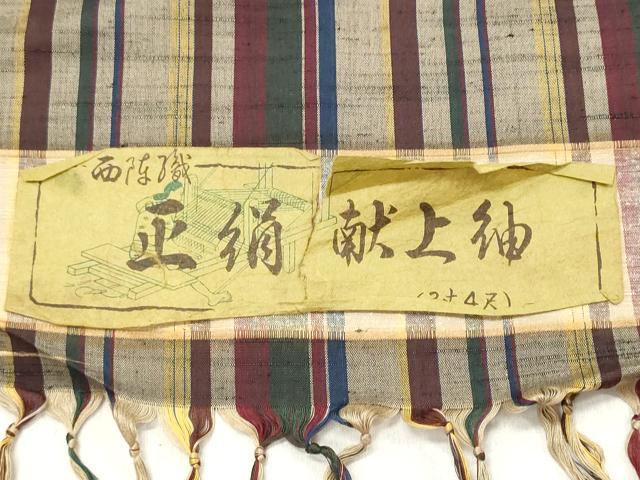 西陣織
正絹 献上紬
(2丈4尺)